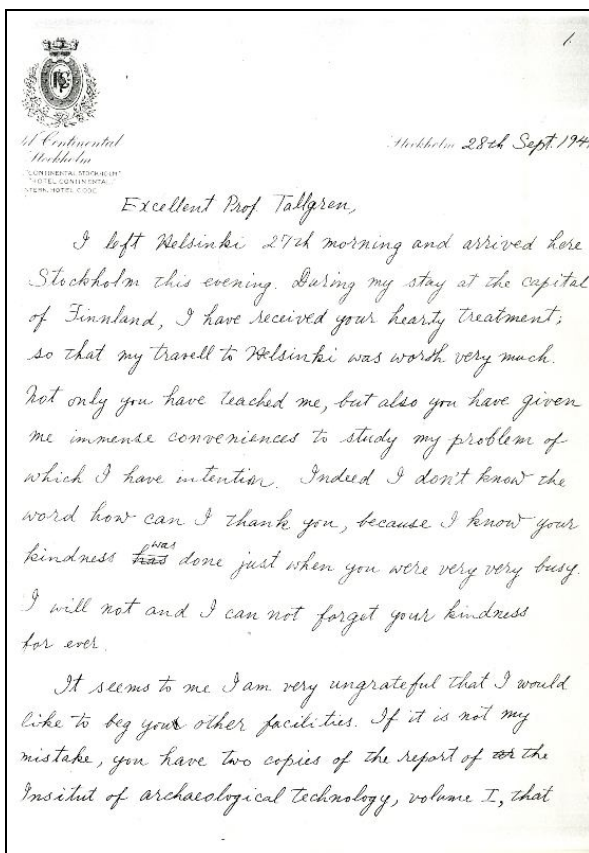 1.
Continental
Stockholm
"CONTINENTAL STOCKHOLM"
"HOTEL CONTINENTAL"
HOTEL CODE
Stockholm 28th Sept. 194
Excellent Prof. Tallgren,
I left Helsinki 27th morning and arrived here
Stockholm this evening. During my stay at the capital
of Finnland, I have received your hearty treatment;
so that my travell to Helsinki was worth very much.
Not only you have teached me, but also you have given
me immense conveniences to study my problem of
which I have intention. Indeed I don't know the
word how can I thank you, because I know your
was
kindness has done just when you were very very busy.
I will not and I can not forget your kindness
for ever.
It seems to me I am very ungrateful that I would
like to beg your other facilities. If it is not my
mistake, you have two copies of the report of the
Insitut of archaeological technology, volume I, that